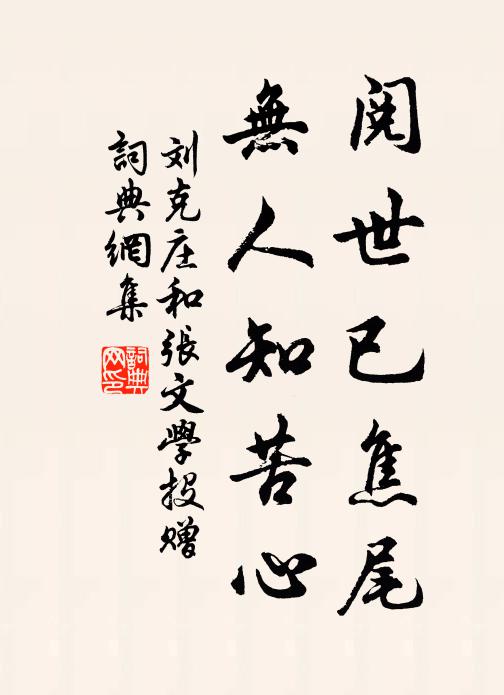 閱世已焦尾
無人知苦心
刘克庄和張文學投贈
詞典網集
詞典网印